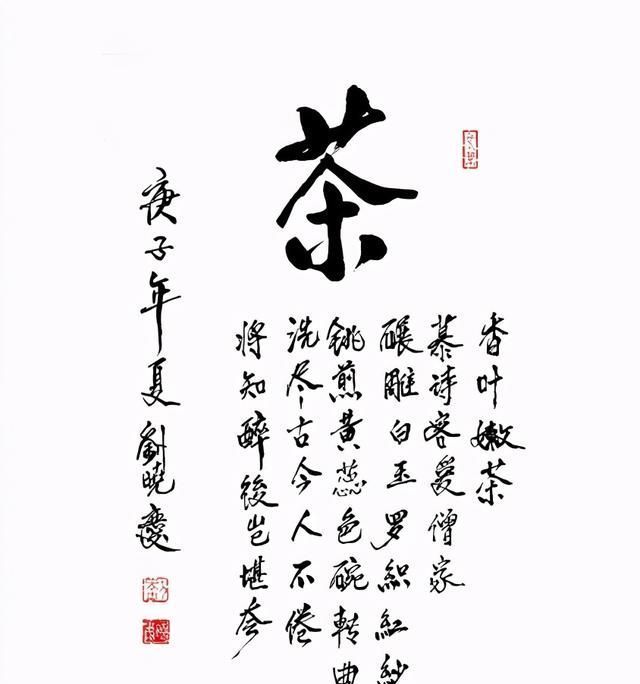 茶
香叶嫩茶
慕诗客爱僧家
碾雕白玉罗织红纱
铫煎黄蕊色碗转曲
洗尽古今人不倦
将知醉後岂堪夸
庚子年夏 劉曉慶